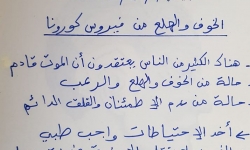 الخوف والهلع من فيروس كورونا
- هناك الكثير من الناس يعتقدون أن الموت قادم
- حالة من الخوف والهلع والرعب
- حالة من عدم الاطمئنان والقلق الدائم
أخذ الإحتياطات واجب طبي